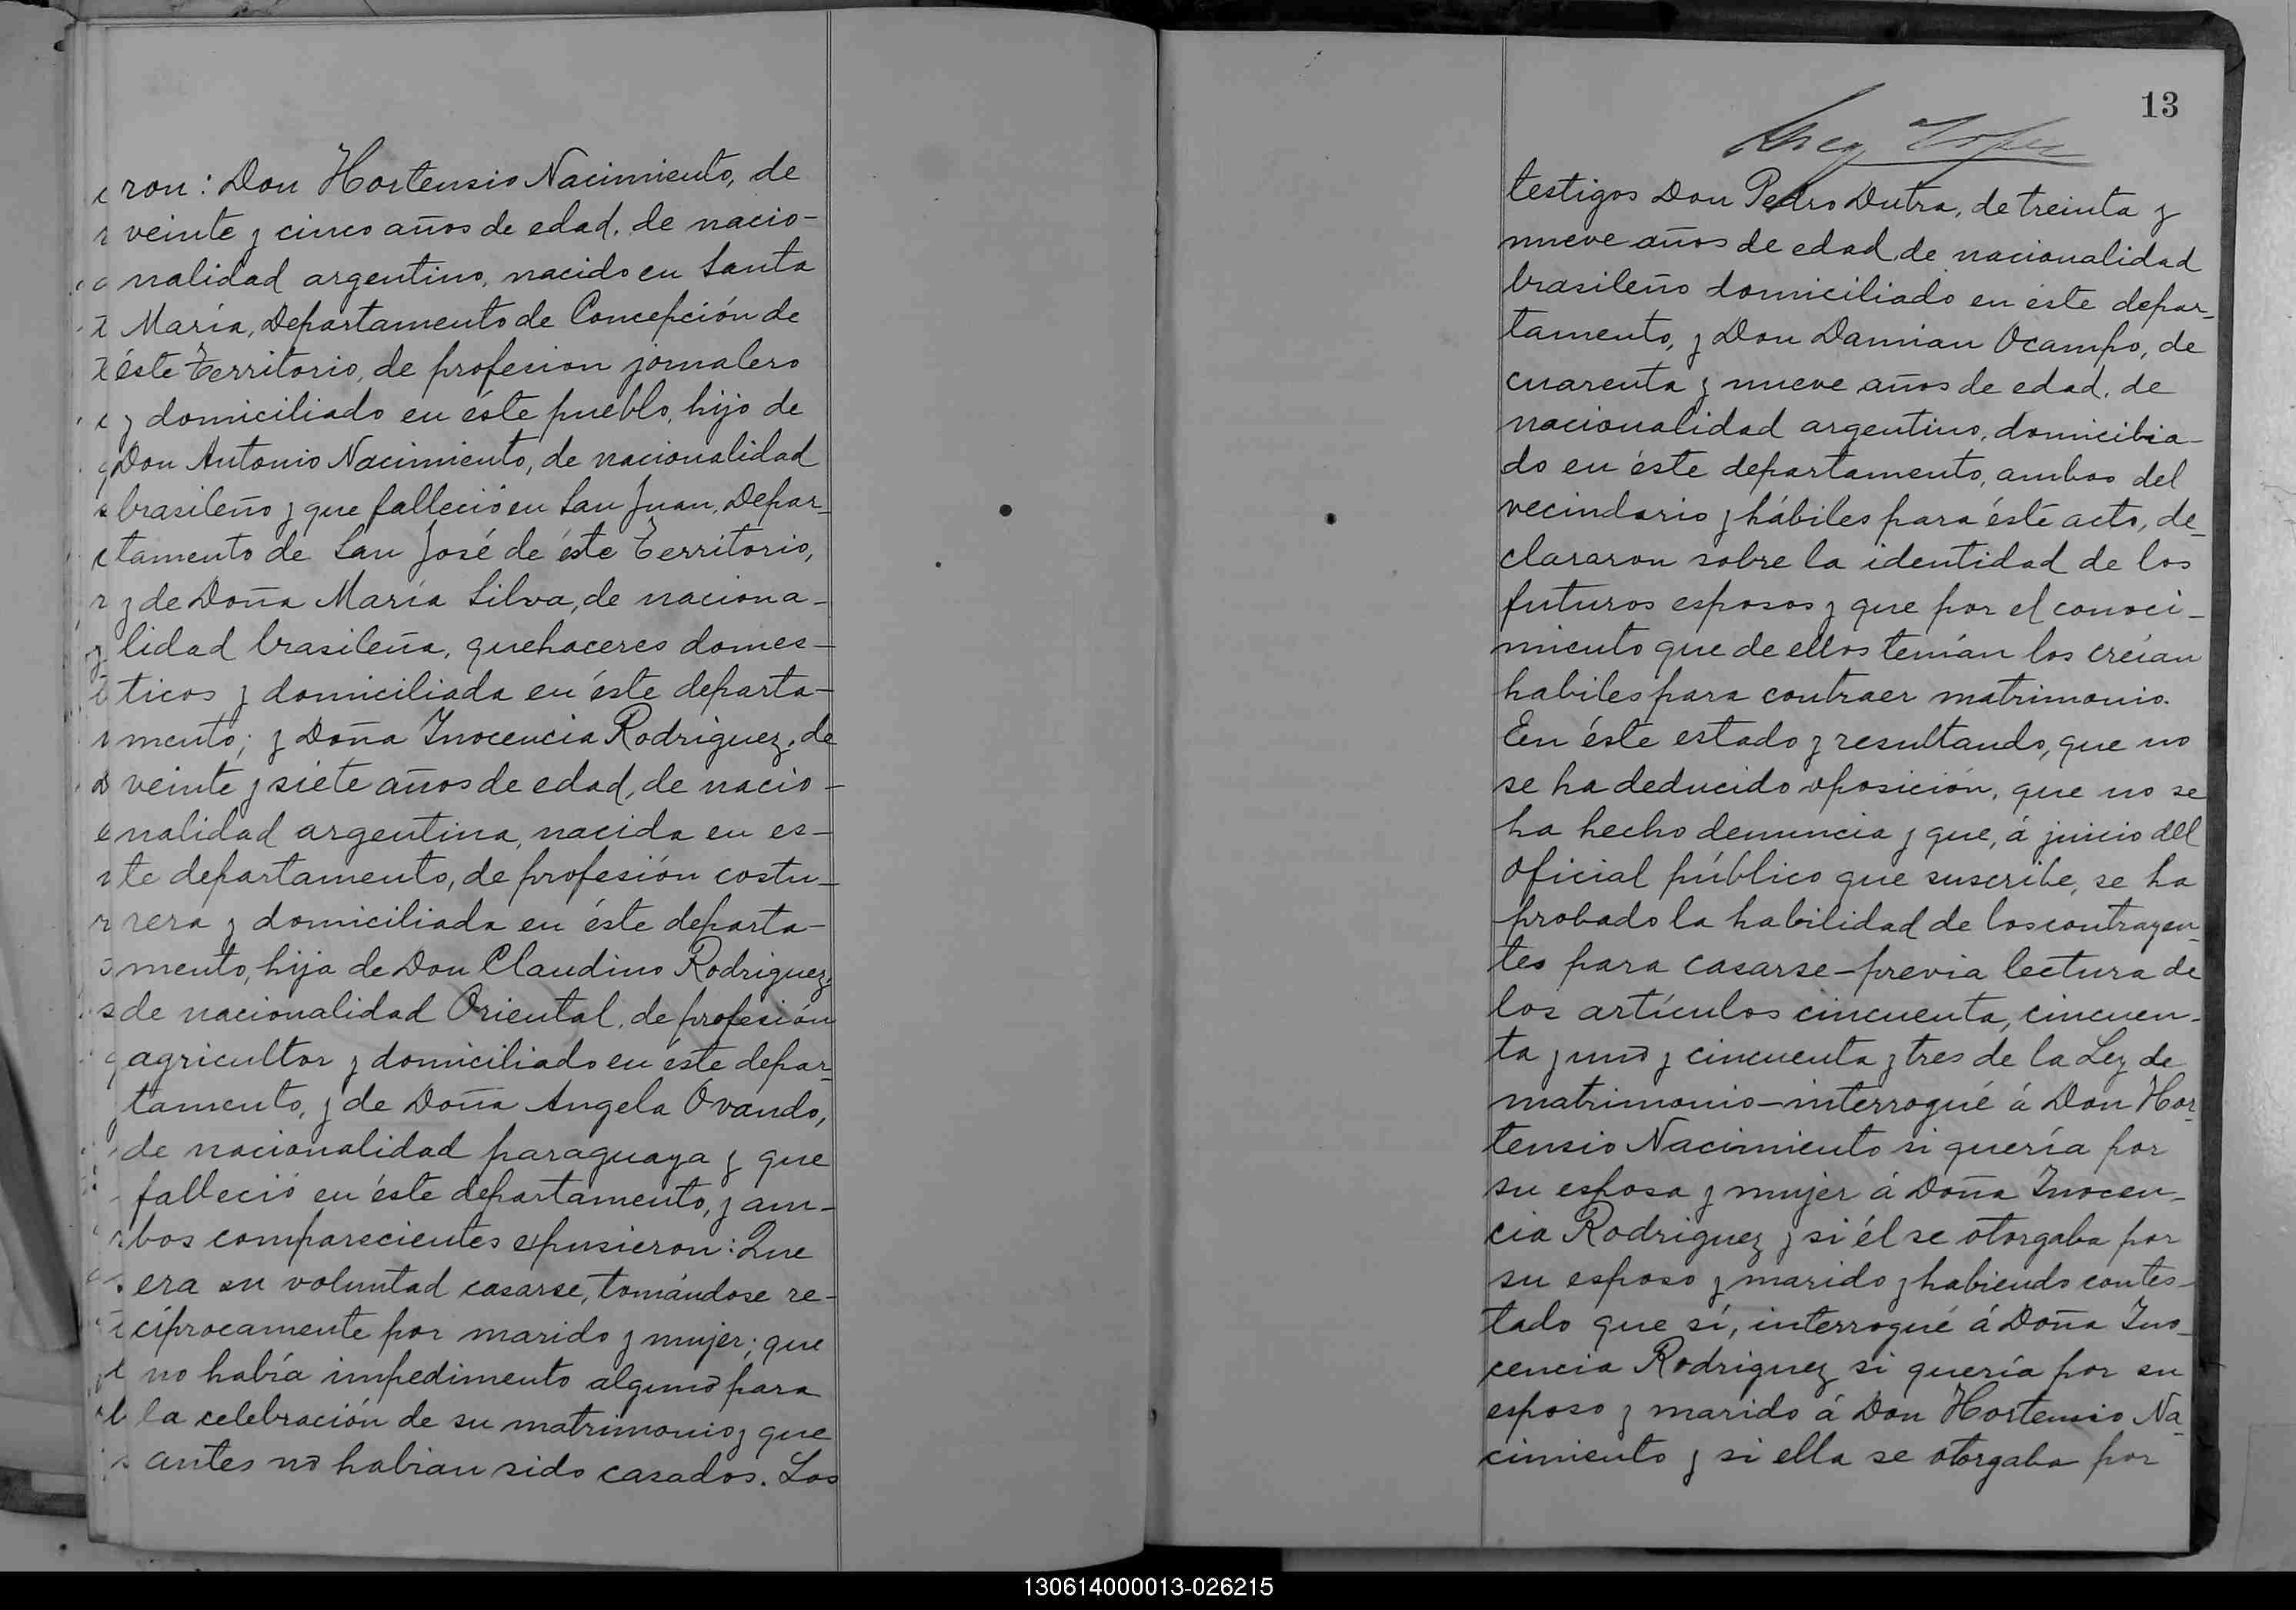 ron: Don Hortensio Nacimiento, de
veinte y cinco años de edad, de nacio-
nalidad argentino, nacido en Santa
María, Departamento de Concepción de
éste Territorio, de profesion jornalero
y domiciliado en éste pueblo, hijo de
Don Antonio Nacimiento, de nacionalidad
brasileño y que falleció en San Juan, Depar-
tamento de San José de éste Territorio,
y de Doña María Silva, de naciona-
lidad brasileña, quehaceres domes-
ticos y domiciliada en éste departa-
mento; y Doña Inocencia Rodriguez, de
veinte y siete años de edad, de nacio-
nalidad argentina, nacida en es-
te departamento, de profesión costu-
rera y domiciliada en éste departa-
mento, hija de Don Claudino Rodriguez,
de nacionalidad Oriental, de profesión
agricultor y domiciliado en éste depar-
tamento, y de Doña Angela Ovando,
de nacionalidad paraguaya y que
falleció en éste departamento, y am-
bos comparecientes expusieron: Que
era su voluntad casarse, tomándose re-
cíprocamente por marido y mujer; que
no había impedimento alguno para
la celebración de su matrimonio y que
antes no habian sido casados. Los
13
testigos Don Pedro Dutra, de treinta y
nueve años de edad, de nacionalidad
brasileño domiciliado en éste depar-
tamento, y Don Damian Ocampo, de
cuarenta y nueve años de edad, de
nacionalidad argentino, domicilia-
do en éste departamento, ambos del
vecindario y hábiles para éste acto, de-
clararon sobre la identidad de los
futuros esposos y que por el conoci-
miento que de ellos tenían los creían
habiles para contraer matrimonio.
En éste estado y resultando, que no
se ha deducido oposición, que no se
ha hecho denuncia y que, á juicio del
Oficial público que suscribe, se ha
probado la habilidad de los contrayen-
tes para casarse-previa lectura de
los artículos cincuenta, cincuen-
ta y uno y cincuenta y tres de la Ley de
matrimonio-interrogué á Don Hor-
tensio Nacimiento si quería por
su esposa y mujer á Doña Inocen-
cia Rodriguez y si él se otorgaba por
su esposo y marido y habiendo contes-
tado que sí, interrogué á Doña Ino-
cencia Rodriguez si quería por su
esposo y marido á Don Hortensio Na-
cimiento y si ella se otorgaba por
130614000013-026215